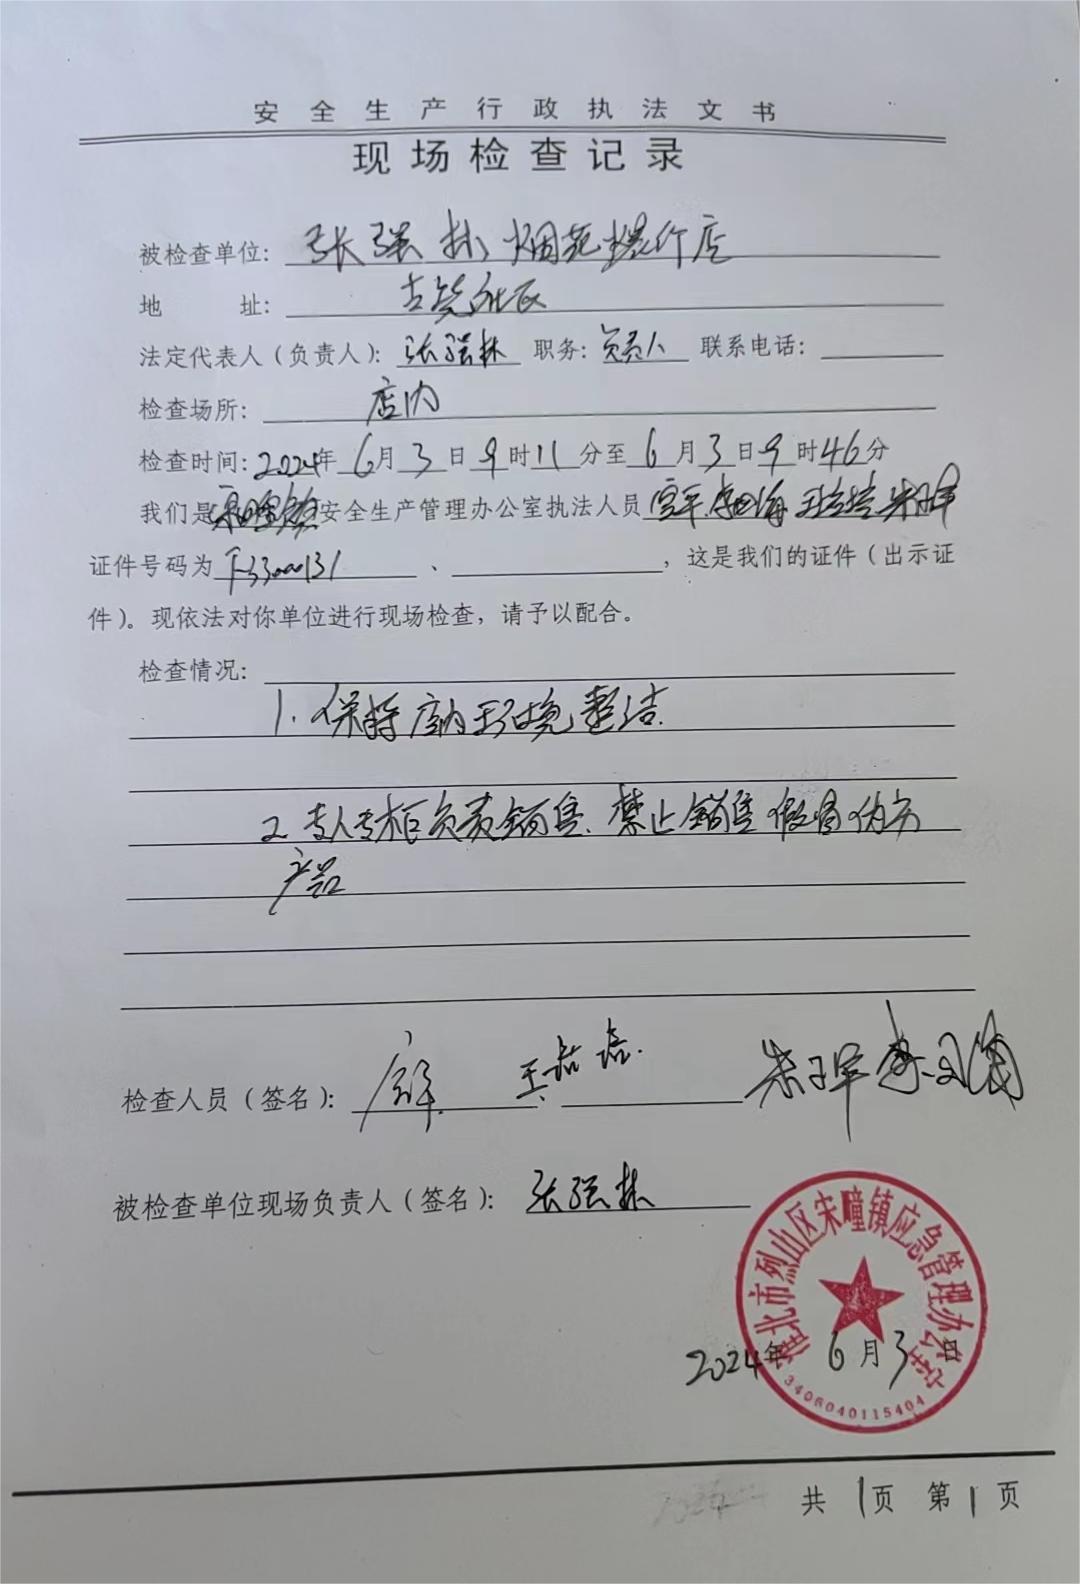 安全生产行政执法文书
现场检查记录
被检查单位：张强林烟花爆竹店
地 址：古饶社区
法定代表人（负责人）：张强林 职务：负责人 联系电话：
检查场所：店内
检查时间：2024年6月3日9时11分至6月3日9时46分
我们是宋疃镇安全生产管理办公室执法人员
证件号码为 、 ，这是我们的证件（出示证
件）。现依法对你单位进行现场检查，请予以配合。
检查情况：
1. 保持店内环境整洁.
2. 专人专柜负责销售、禁止销售假冒伪劣
产品
检查人员（签名）： 朱子军
被检查单位现场负责人（签名）：张强林
淮北市烈山区宋疃镇应急管理办公室
2024年6月3日
3406040115404
共1页 第1页